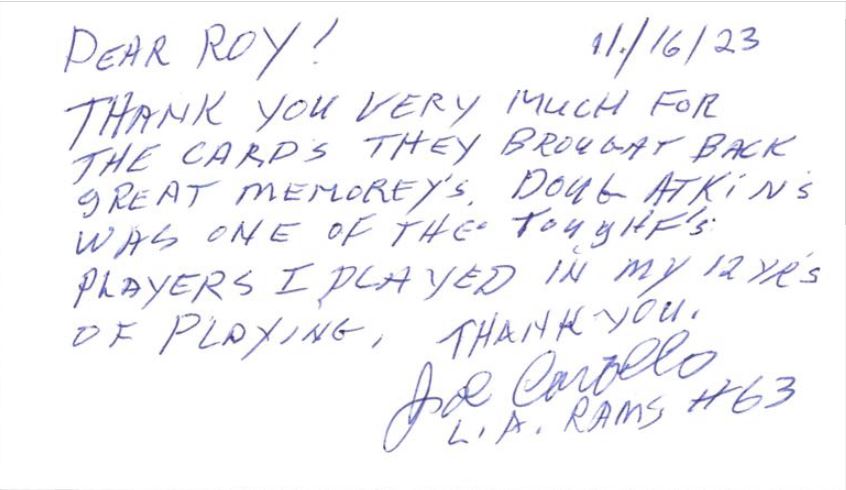 DEAR ROY! 11/16/23
THANK YOU VERY MUCH FOR
THE CARDS THEY BROUGAT BACK
GREAT MEMOREY'S. DOUG ATKINS
WAS ONE OF THE TOUGHF'S
PLAYERS I PLAYED IN MY 12 YR'S
OF PLAYING, THANK YOU.
Joe Carollo
L.A. RAMS #63